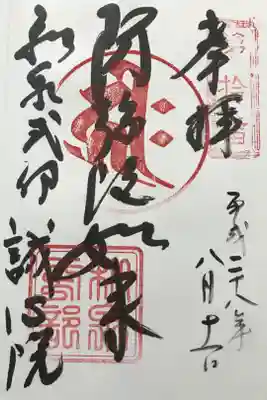 奉拝
平成二十八年
八月十一日
阿弥陀如来
和泉式部
誠心院